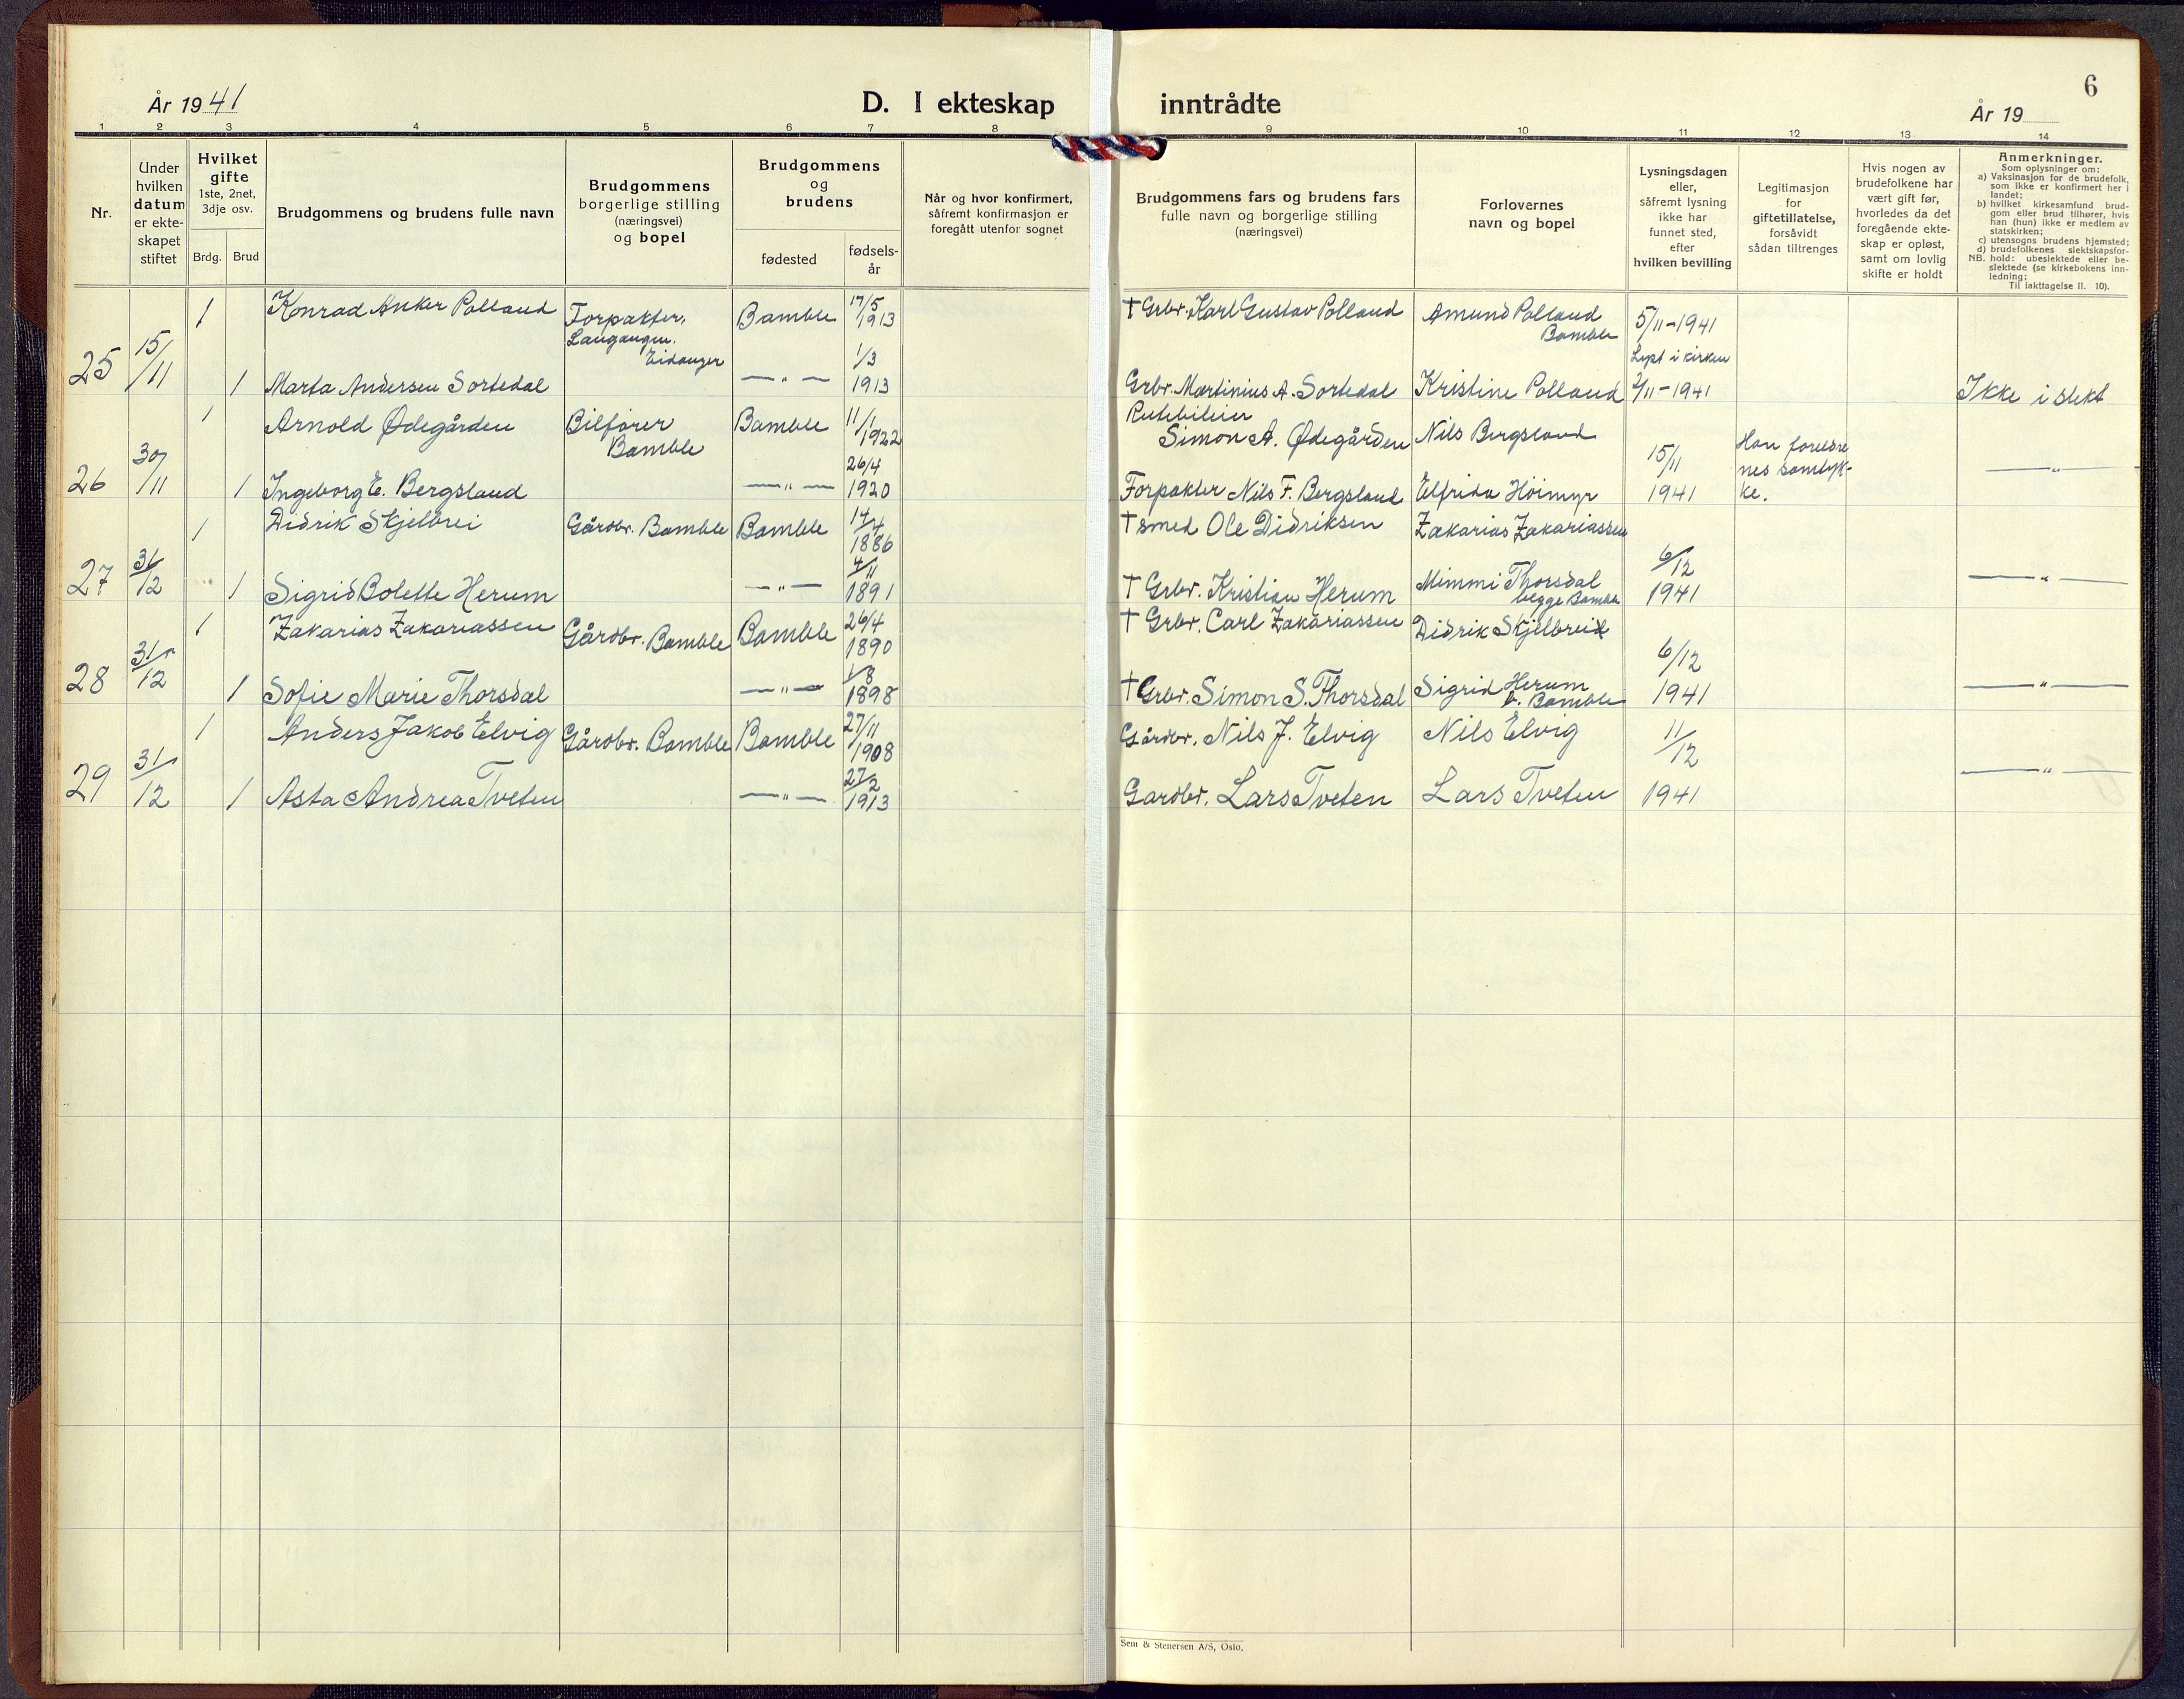 År 1941
D. I ekteskap inntrådte
År 19
6
1 2 3 4 5 6 7 8 9 10 11 12 13 14
Nr.
Under
hvilken
datum
er ekte-
skapet
stiftet
Hvilket
gifte
1ste, 2net,
3dje osv.
Brdg. Brud
Brudgommens og brudens fulle navn
Brudgommens
borgerlige stilling
(næringsvei)
og bopel
Brudgommens
og
brudens
fødested
fødsels-
år
Når og hvor konfirmert,
såfremt konfirmasjon er
foregått utenfor sognet
Brudgommens fars og brudens fars
fulle navn og borgerlige stilling
(næringsvei)
Forlovernes
navn og bopel
Lysningsdagen
eller,
såfremt lysning
ikke har
funnet sted,
efter
hvilken bevilling
Legitimasjon
for
giftetillatelse,
forsåvidt
sådan tiltrenges
Hvis nogen av
brudefolkene har
vært gift før,
hvorledes da det
foregående ekte-
skap er opløst,
samt om lovlig
skifte er holdt
Anmerkninger.
Som oplysninger om:
a) Vaksinasjon for de brudefolk,
som ikke er konfirmert her i
landet;
b) hvilket kirkesamfund brud-
gom eller brud tilhører, hvis
han (hun) ikke er medlem av
statskirken;
c) utensogns brudens hjemsted;
d) brudefolkenes slektskapsfor-
NB. hold: ubeslektede eller be-
slektede (se kirkebokens inn-
ledning;
Til iakttagelse II. 10).
25 15/11
1 Konrad Anker Polland Forpakter, Langangen. Eidanger Bamble 17/5 1913 † Grbr. Karl Gustav Polland Amund Polland Bamble 5/11-1941
Lyst i kirken
1 Marta Andersen Sortedal —„— 1/3 1913 Grbr. Martinius A. Sortedal Kristine Polland 2/11-1941 Ikke i slekt
26 30/11
1 Arnold Ødegården Bilfører Bamble Bamble 11/1 1922 Rutebileier Simon A. Ødegården Nils Bergsland 15/11 1941 Han foreldre
nes samtyk-
ke. —„—
1 Ingeborg E. Bergsland —„— 26/4 1920 Forpakter Nils F. Bergsland Elfrida Höimyr
27 31/12
1 Didrik Skjelbrei Gårdbr. Bamble Bamble 14/4 1886 † smed Ole Didriksen Zakarias Zakariassen 6/12 1941 —„—
1 Sigrid Bolette Herum —„— 4/11 1891 † Grbr. Kristian Herum Mimmi Thorsdal begge Bamble
28 31/12
1 Zakarias Zakariassen Gårdbr. Bamble Bamble 26/4 1890 † Grbr. Carl Zakariassen Didrik Skjelbrei 6/12 1941 —„—
1 Sofie Marie Thorsdal —„— 1/8 1898 † Grbr. Simon S. Thorsdal Sigrid Herum b. Bamble
29 31/12
1 Anders Jakob Elvig Gårdbr. Bamble Bamble 27/11 1908 Gårdbr. Nils J. Elvig Nils Elvig 11/12 1941 —„—
1 Asta Andrea Tveten —„— 27/2 1913 Gardbr. Lars Tveten Lars Tveten
Sem & Stenersen A/S, Oslo.